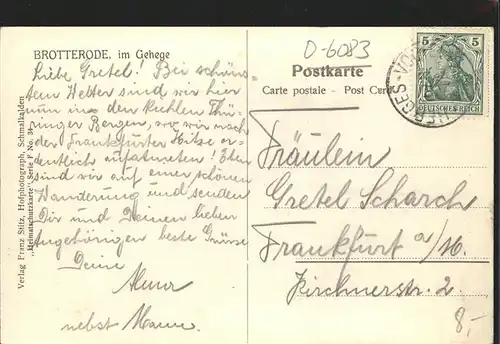 BROTTERODE, im Gehege
Liebe Gretel! Bei schöns-
tem Wetter sind wir hier
nun in den kühlen Thü-
ringer Bergen, wo wir nach
der Frankfurter Hitze or-
dentlich aufatmeten! Eben
sind wir auf einer schönen
Wanderung und senden
Dir und Deinen lieben
Angehörigen beste Grüsse
Deine
nebst
Verlag Franz Stitz, Hofphotograph, Schmalkalden
„Heimatschutzkarte“ Serie F No. 34
D-6083
Postkarte
Carte postale - Post Card
5 5
DEUTSCHES REICH
Fräulein
Gretel Scharch
Frankfurt a/M.
Kirchnerstr. 2
8,-